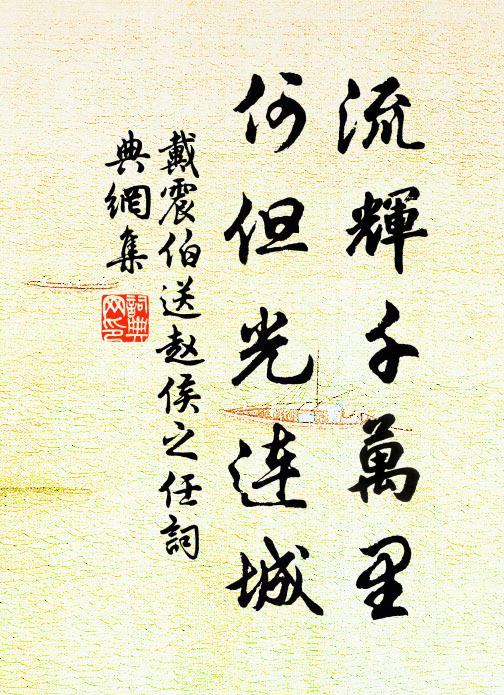 流輝千萬里
何但光連城
戴震伯送赵侯之任詞
典網集
詞典網印